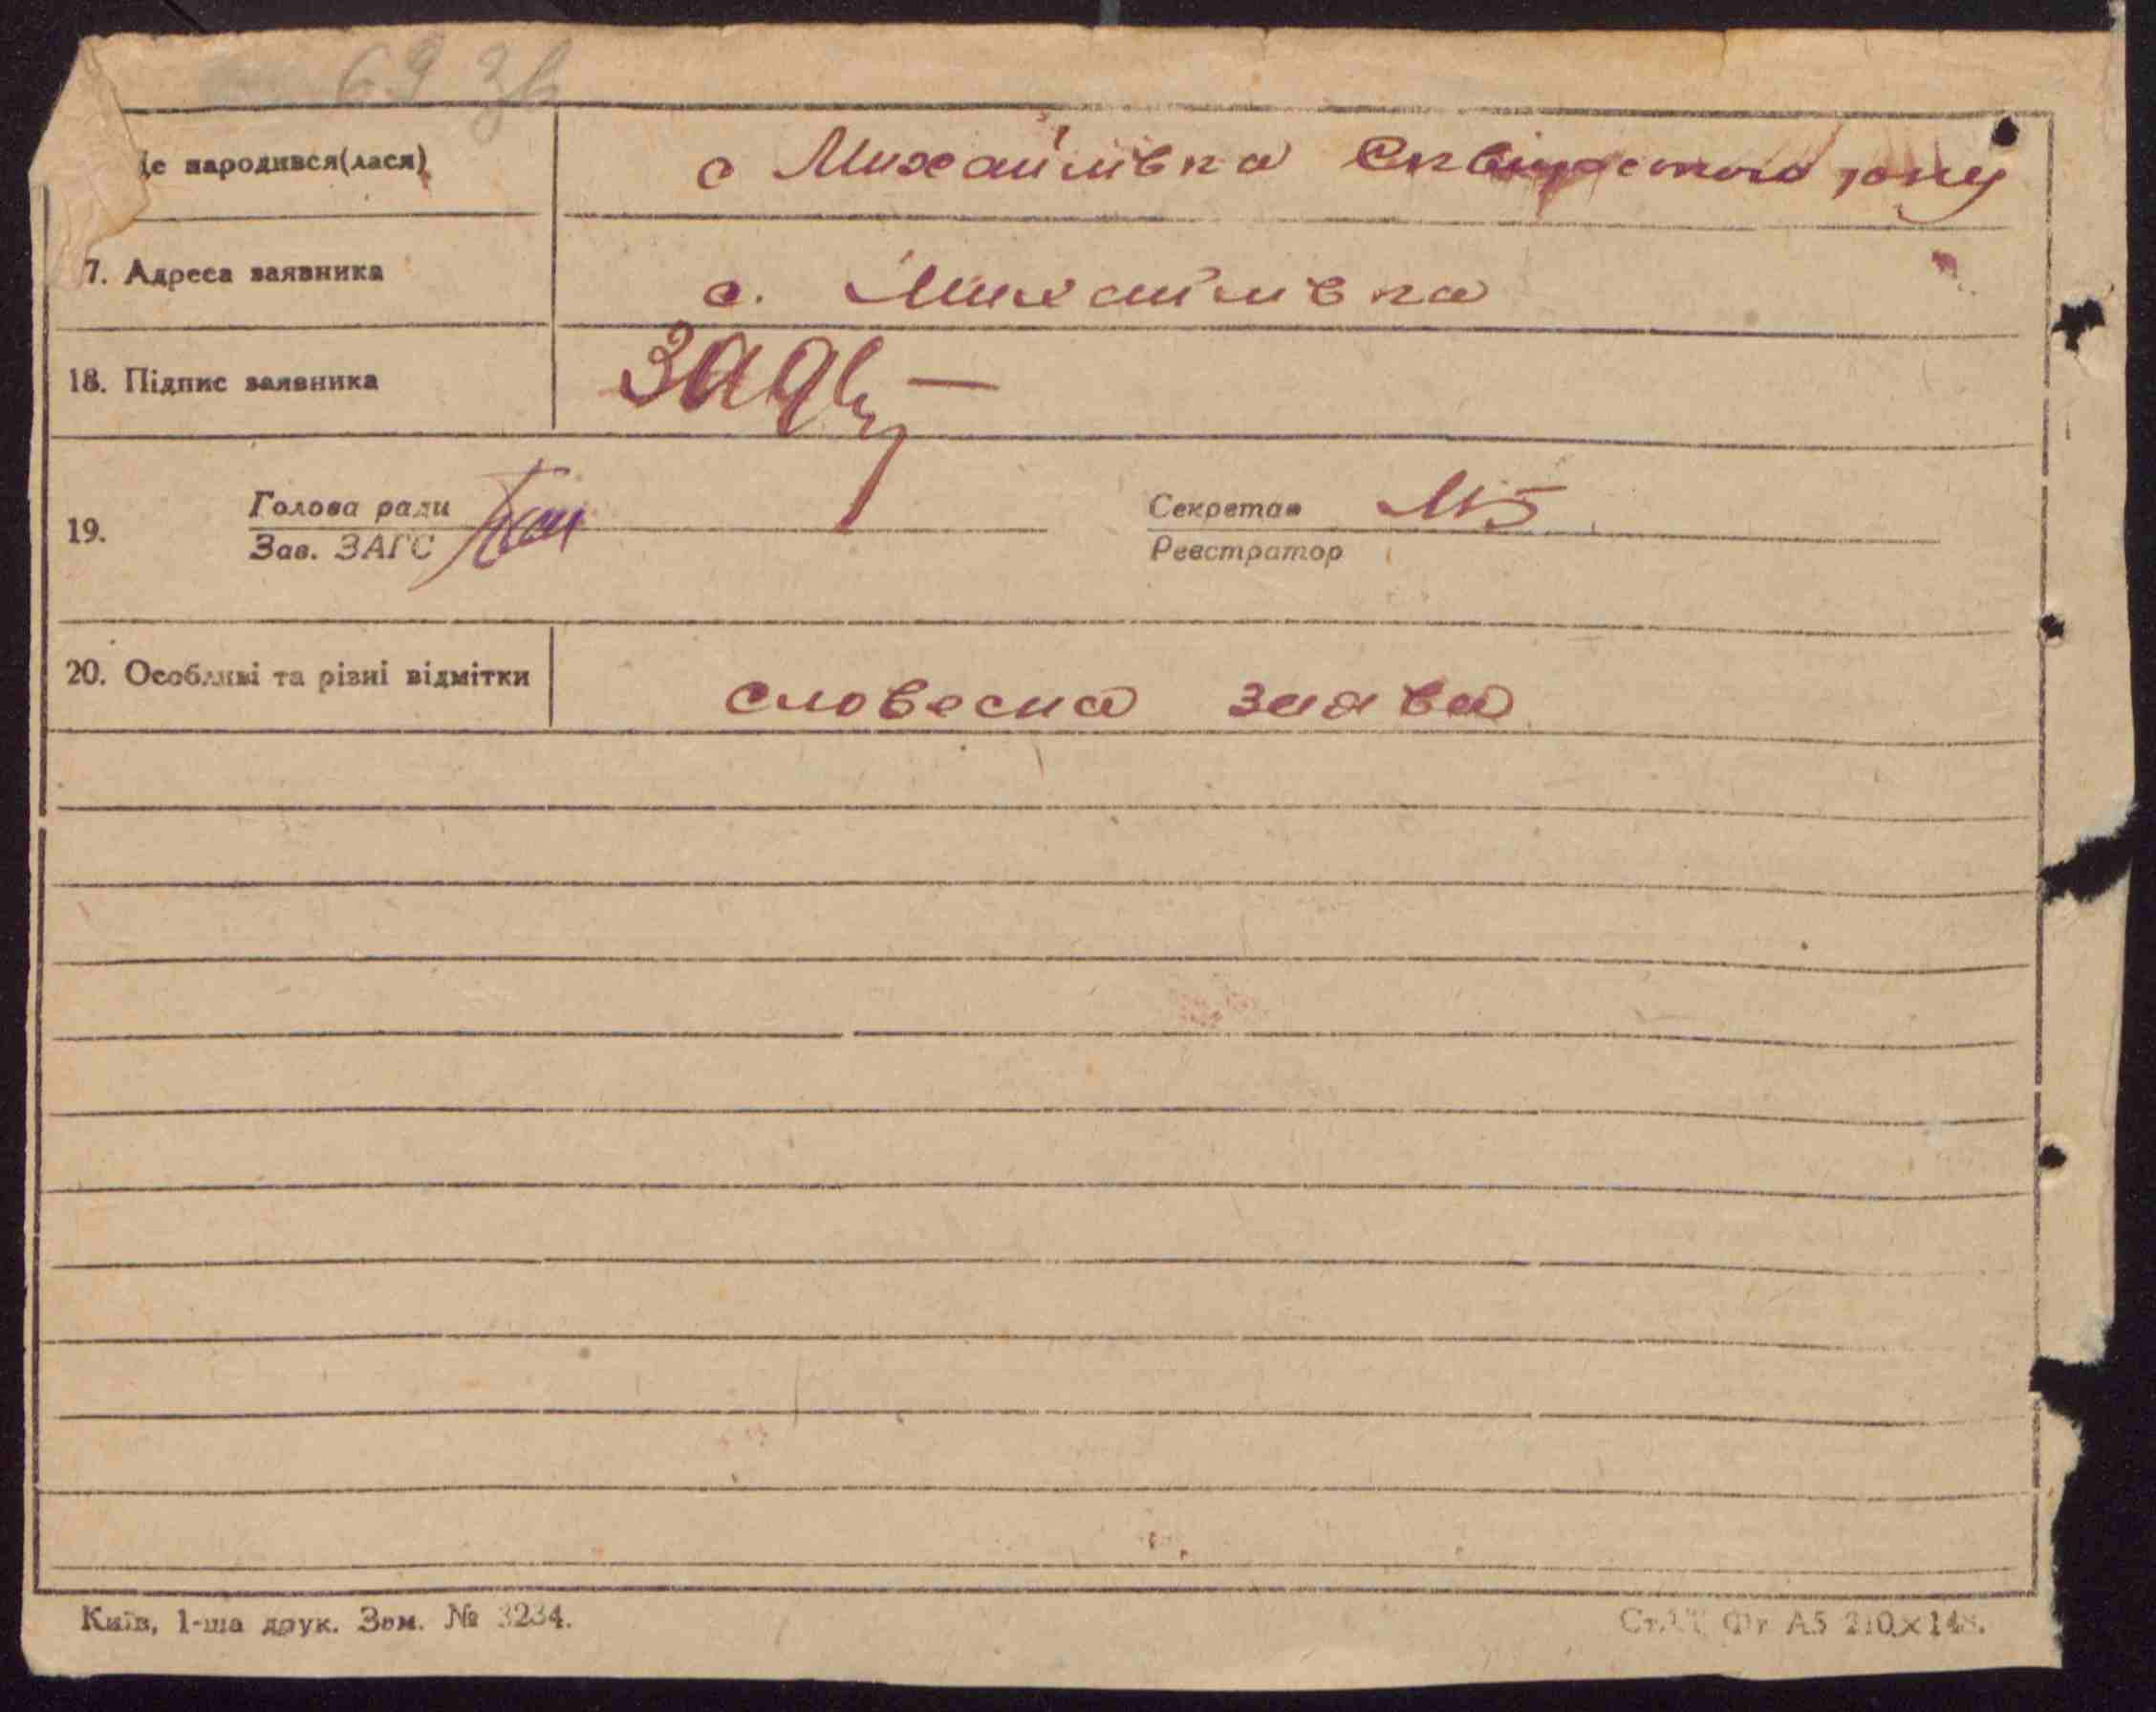 69 зв
Де народився(лася) с Михайлівка Сквирського р-ну
7. Адреса заявника с. Михайлівка
18. Підпис заявника
19. Голова ради Секретар
Зав. ЗАГС Реєстратор
20. Особливі та різні відмітки словесна заява
Київ, 1-ша друк. Зам. № 3234. Ст. Фт А5 210×148.